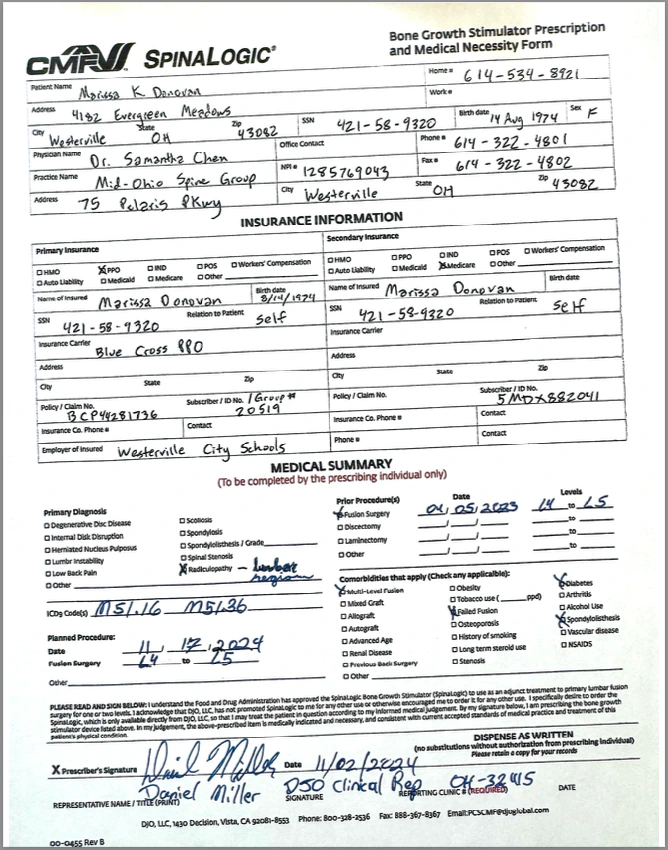 CMF SPINALOGIC®
Bone Growth Stimulator Prescription
and Medical Necessity Form
Patient Name Marissa K Donovan Home # 614-534-8921
Work #
Address 4182 Evergreen Meadows
City Westerville State OH Zip 43082 SSN 421-58-9320 Birth date 14 Aug 1974 Sex F
Physician Name Dr. Samantha Chen Office Contact Phone # 614-322-4801
Practice Name Mid-Ohio Spine Group NPI # 1285769043 Fax # 614-322-4802
Address 75 Polaris Pkwy City Westerville State OH Zip 43082
INSURANCE INFORMATION
Primary Insurance
☐ HMO ☒ PPO ☐ IND ☐ POS ☐ Workers' Compensation
☐ Auto Liability ☐ Medicaid ☐ Medicare ☐ Other
Name of Insured Marissa Donovan Birth date 8/14/1974
SSN 421-58-9320 Relation to Patient self
Insurance Carrier Blue Cross PPO
Address
City State Zip
Policy / Claim No. BCP44281736 Subscriber / ID No. / Group # 20519
Insurance Co. Phone # Contact
Employer of Insured Westerville City Schools
Secondary Insurance
☐ HMO ☐ PPO ☐ IND ☐ POS ☐ Workers' Compensation
☐ Auto Liability ☐ Medicaid ☒ Medicare ☐ Other
Name of Insured Marissa Donovan Birth date
SSN 421-58-9320 Relation to Patient self
Insurance Carrier
Address
City State Zip
Policy / Claim No. Subscriber / ID No. 5MDX882041
Insurance Co. Phone # Contact
Phone # Contact
MEDICAL SUMMARY
(To be completed by the prescribing individual only)
Primary Diagnosis
☐ Degenerative Disc Disease
☐ Internal Disk Disruption
☐ Herniated Nucleus Pulposus
☐ Lumbr Instability
☐ Low Back Pain
☐ Other
☐ Scoliosis
☐ Spondylosis
☐ Spondylolisthesis / Grade
☐ Spinal Stenosis
☒ Radiculopathy - lumbar
region
ICD9 Code(s) M51.16 M51.36
Planned Procedure:
Date 11, 17, 2024
Fusion Surgery L4 to L5
Other
Prior Procedure(s) Date Levels
☒ Fusion Surgery 04, 05, 2023 L4 to L5
☐ Discectomy to
☐ Laminectomy to
☐ Other to
Comorbidities that apply (Check any applicaible):
☒ Multi-Level Fusion
☐ Mixed Graft
☐ Allograft
☐ Autograft
☐ Advanced Age
☐ Renal Disease
☐ Previous Back Surgery
☐ Other
☐ Obesity
☐ Tobacco use ( ppd)
☒ Failed Fusion
☐ Osteoporosis
☐ History of smoking
☐ Long term steroid use
☐ Stenosis
☒ Diabetes
☐ Arthritis
☐ Alcohol Use
☒ Spondylolisthesis
☐ Vascular disease
☐ NSAIDS
PLEASE READ AND SIGN BELOW: I understand the Food and Drug Administration has approved the Spinalogic Bone Growth Stimulator (SpinaLogic) to use as an adjunct treatment to primary lumbar fusion
surgery for one or two levels. I acknowledge that DJO, LLC, has not promoted SpinaLogic to me for any other use or otherwise encouraged me to order it for any other use. I specifically desire to order the
Spinalogic, which is only available directly from DJO, LLC, so that I may treat the patient in question according to my informed medical judgement. By my signature below, I am prescribing the bone growth
stimulator device listed above. In my judgement, the above-prescribed item is medically indicated and necessary, and consistent with current accepted standards of medical practice and treatment of this
patient's physical condition.
DISPENSE AS WRITTEN
(no substitutions without authorization from prescribing individual)
Please retain a copy for your records
X Prescriber's Signature Daniel Miller Date 11/02/2024
Daniel Miller DSO Clinical Rep
REPRESENTATIVE NAME / TITLE (PRINT) SIGNATURE REPORTING CLINIC # (REQUIRED) DATE
DJO, LLC, 1430 Decision, Vista, CA 92081-8553 Phone: 800-328-2536 Fax: 888-367-8367 Email:PCSCMF@djoglobal.com
00-0455 Rev B